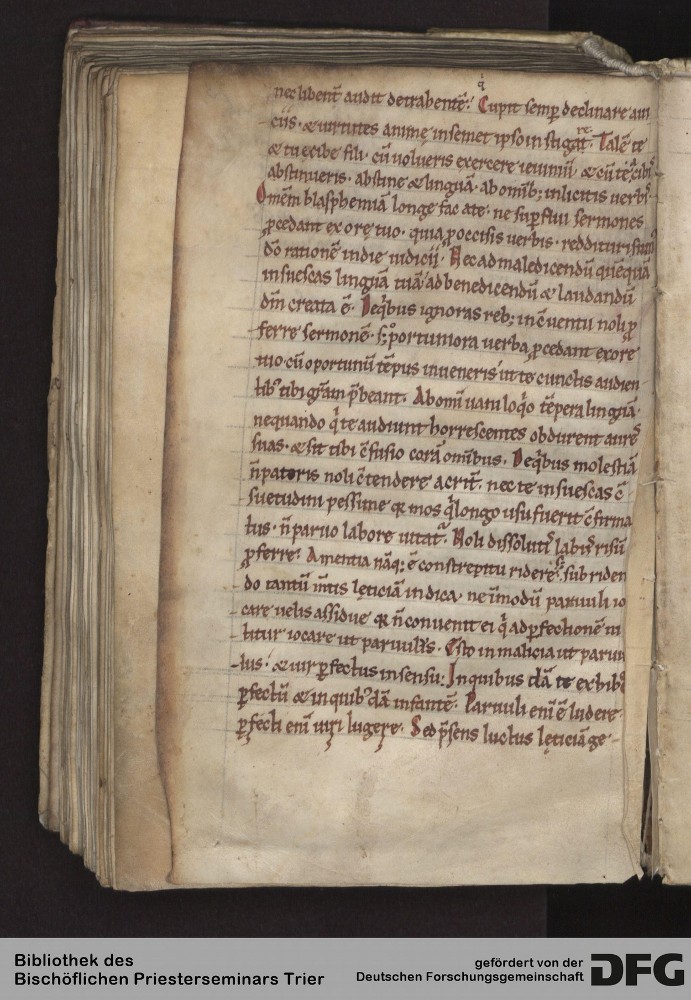 nec libent̄ audit detrahentē. Cupit semꝑ declinare a ui
ciis · & uirtutes animę in semet ipso instigat̄. Talē te
& tu exibe fili · cū uolueris exercere ieiuniū · & cū te a cibis
abstinueris · abstine & linguā · ab omīb; inlicitis uerbis
Omēm blasphemiā longe fac a te · ne suꝑflui sermones
ꝓcedant ex ore tuo · quia ꝓ occisis uerbis · reddituri sum
dō rationē in die iudicij. Nec ad maledicendū quēquā
insuescas linguā tuā / ad benedicendū & laudandū
dm̄ creata ē. De qͥbus ignoras reb; in c̄uentu noli ꝓ
ferre sermonē · s; oportuniora uerba ꝓcedant ex ore
tuo cū oportunū tēpus inueneris ut te cunctis audien
tibꝰ tibi grām p̄beant. Ab omīī uaniloqͥo tēpera linguā ·
ne quando qͥ te audiunt horrescentes obdurent aures
suas · & sit tibi c̄fusio corā omībus. De qͥbus molestiā
n̄ pateris noli c̄tendere acrit̄. nec te insuescas c̄
suetudini pessime qꝛ mos qͥ longo usu fuerit c̄firma
tus · n̄ paruo labore uitatͬ. Noli dissolutis labiis risū
ꝓferre. Amentia nāq; ē cū strepitu ridere s; subriden
do tantū m̄tis lęticiā indica · ne īmodū paruuli io
care uelis assidue qꝛ n̄ conuenit ei qͥ ad ꝑfectionē ni
titur iocare ut paruulus. Esto in malicia ut paruu
lus / & uir ꝑfectus in sensu. In quibus dā te exhibe
ꝑfectū & in quibꝰdā infantē. Paruuli eni ē ludere
ꝑfecti eni uiri lugere. Sed p̄sens luctus lęticiā ge-
Bibliothek des
Bischöflichen Priesterseminars Trier
gefördert von der
Deutschen Forschungsgemeinschaft
DFG